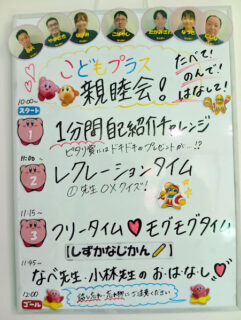 こどもプラス
親睦会!
たべて!
のんで!
はなして!
10:00~
スタート
1
1分間自己紹介チャレンジ
ピタリ賞にはドキドキのプレゼントが…!?
11:00~
2
レクレーションタイム
①先生○×クイズ!
11:15~
3
フリータイム♥モグモグタイム
【しずかなじかん】
11:45~
なべ先生・小林先生のお・は・な・し♡
12:00
ゴール